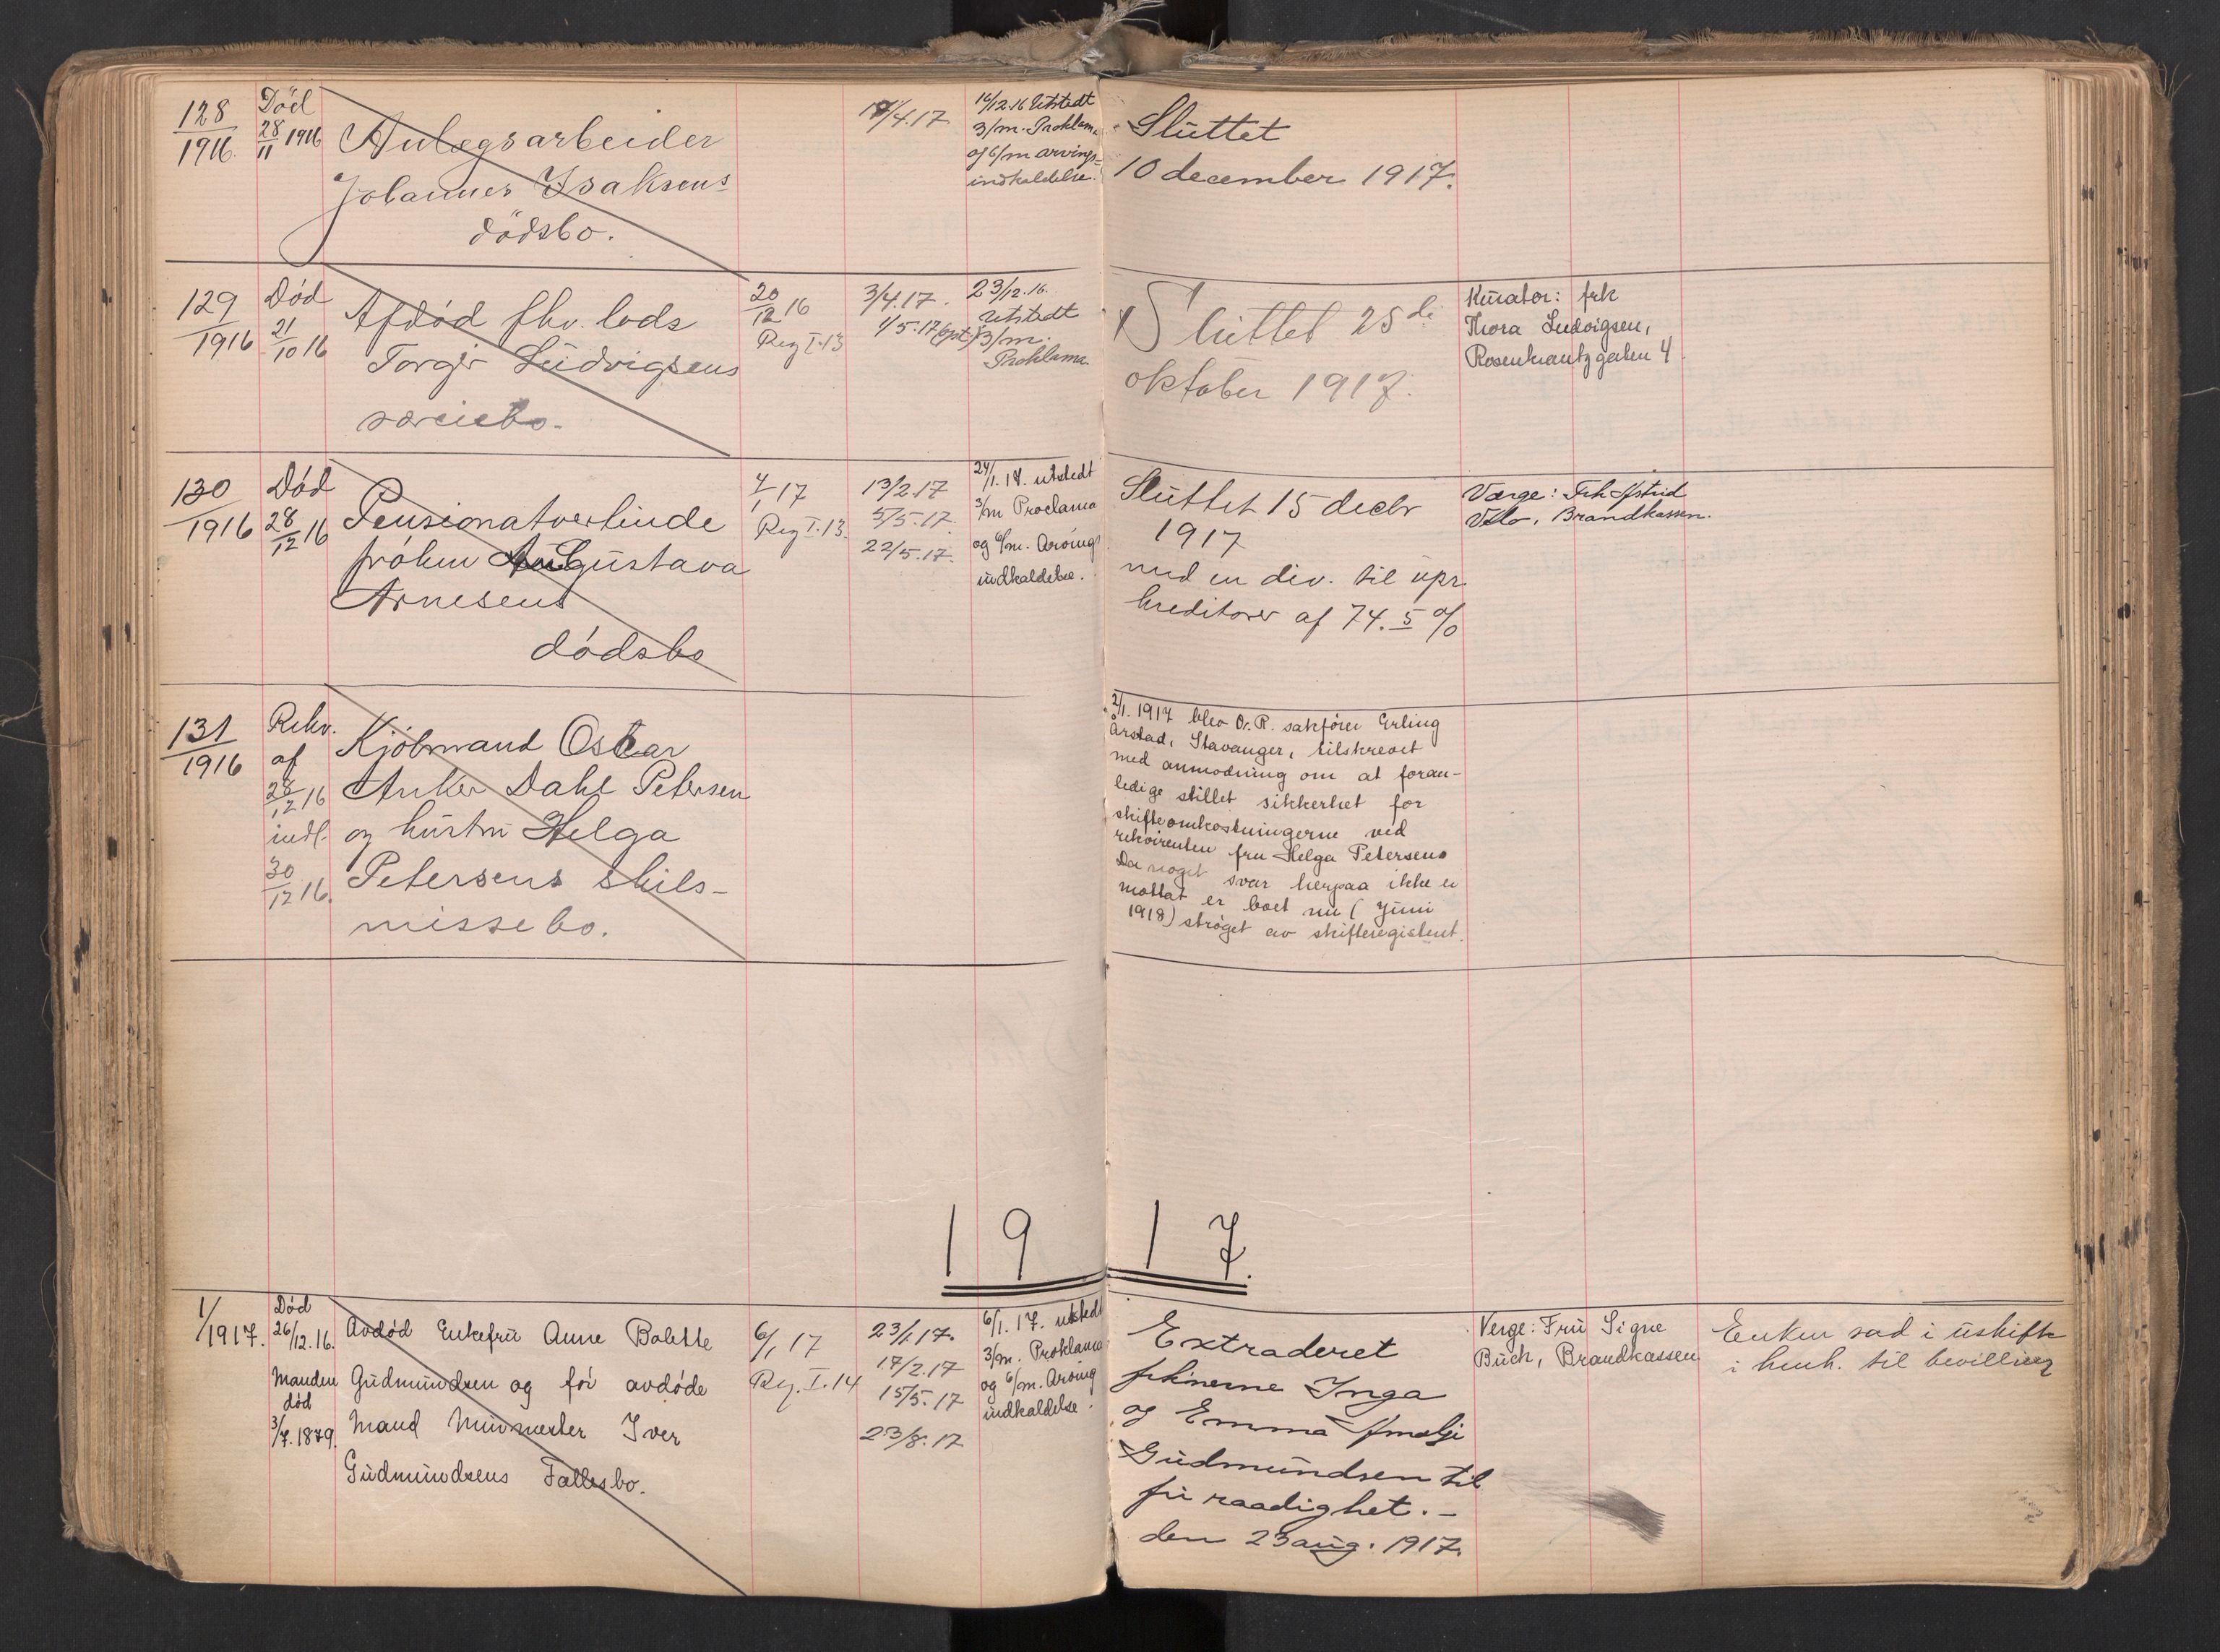 128
1916.
Död
28/11 1916
Anlægsarbeider
Johannes Isaksens
dödsbo.
17/4.17.
14/12.16 Utstedt
3/m. Proklama
og 6/m arvings-
indkaldelse.
Sluttet
10 december 1917.
129
1916
Död
21/10 16
Afdöd fhv. lods
Torger Ludvigsens
særeiebo.
20/12 16
Reg I.13
3/4.17.
1/5.17
23/12.16.
Utstedt
3/m.
Proklama
Sluttet 25de
oktober 1917.
Kurator: frk
Thora Ludvigsen,
Rosenkrantzgaten 4
130
1916
Död
28/12 16
Pensionatvertinde
fröken Augustava
Arnesens
dödsbo
4/1 17
Reg I.13.
13/2.17
5/5.17.
22/5.17.
24/1.17. utstedt
3/m Proclama
og 6/m. Arvings
indkaldelse.
Sluttet 15 decbr
1917
med en div. til upr.
kreditorer af 74.5 %
Værge: Frk Astrid
Brandkassen.
131
1916
Rekv.
af
28/12 16
indl.
30/12 16.
Kjöbmand Oscar
Anker Dahl Petersen
og hustru Helga
Petersens skils-
missebo.
2/1. 1917 blev O.R. sakförer Erling
Årstad, Stavanger, tilskrevet
med anmodning om at foran-
ledige stillet sikkerhet for
skifteomkostningerne ved
rekvirenten fru Helga Petersens
Da noget svar herpaa ikke er
mottat er boet nu (juni
1918) ströget av skifteregisteret.
1917.
1/1917.
Död
26/12.16.
Manden
död
3/7.1879.
Avdöd Enkefru Anne Bolette
Gudmundsen og för avdöde
Mand Murmester Iver
Gudmundsens Fællesbo.
6/1 17
Reg. I.14
23/1.17.
17/2.17
15/5.17
23/8.17
6/1.17. utstedt
3/m. Proklama
og 6/m. Arving
indkaldelse.
Extraderet
frknerne Inga
og Emma Amalje
Gudmundsen til
fri raadighet.-
den 23 aug. 1917.
Verge: Fru Signe
Buch, Brandkassen
Enken sad i uskifte
i henh. til bevilling